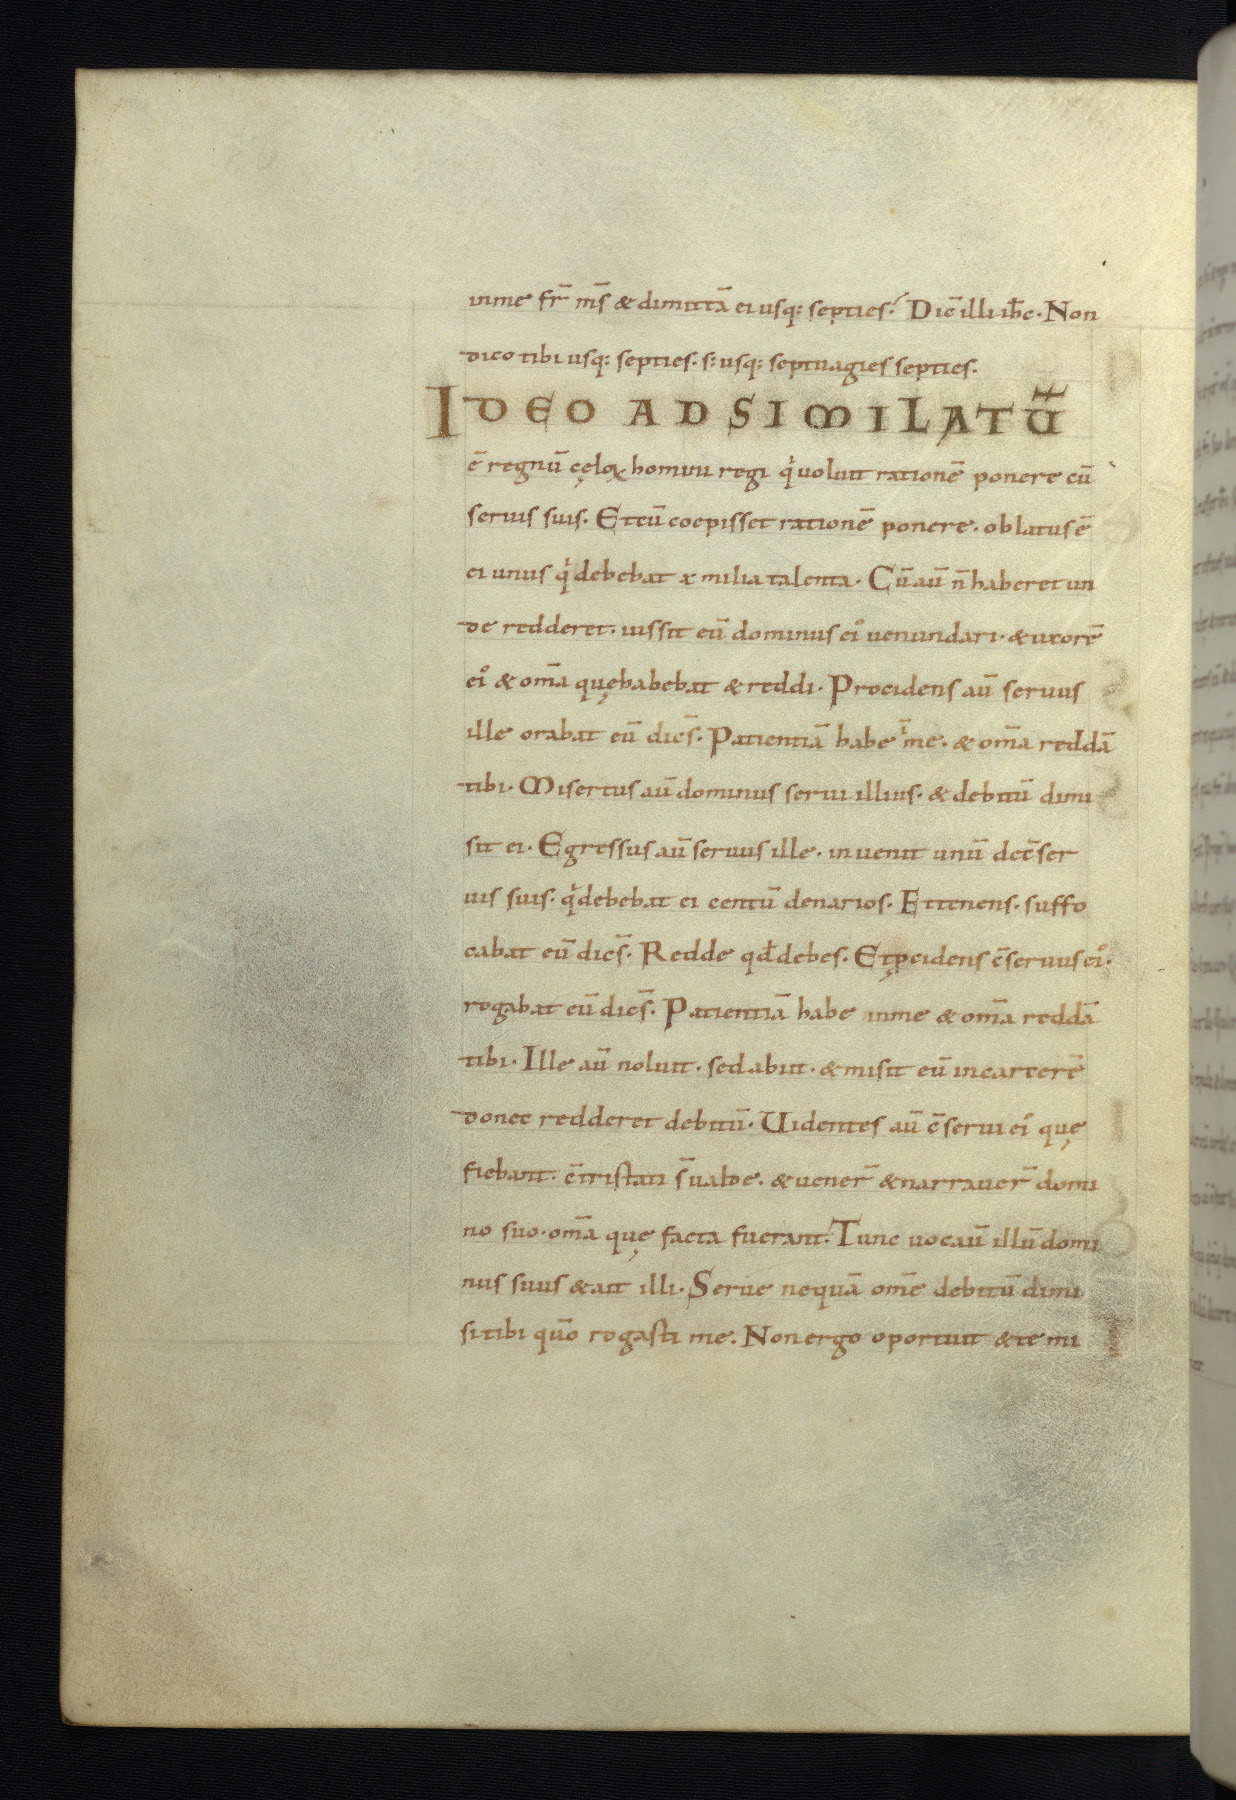 inme fr̄ ms̄ & dimittā ei usq; septies. Dic̄ illi ih̄c. Non
dico tibi usq; septies. s; usq; septuagies septies.
IDEO ADSIMILATŪ
ē regnū cęloꝝ homini regi qͥ uoluit rationē ponere cū
seruis suis. Et cū coepisset rationē ponere. oblatus ē
ei unus qͥ debebat x milia talenta. Cū aū n̄ haberet un
de redderet. iussit eū dominus eiꝰ uenundari. & uxorē
eiꝰ & om̄a quę habebat & reddi. Procidens aū seruus
ille orabat eū dicēs. Patientiā habe ī me. & om̄a reddā
tibi. Misertus aū dominus serui illius. & debitū dimi
sit ei. Egressus aū seruus ille. inuenit unū de c̄ser
uis suis. qͥ debebat ei centū denarios. Et tenens. suffo
cabat eū dicēs. Redde qd̄ debes. Et ꝓcidens c̄seruus eiꝰ.
rogabat eū dicēs. Patientiā habe inme & om̄a reddā
tibi. Ille aū noluit. sed abiit. & misit eū incarcerē
donec redderet debitū. Uidentes aū c̄serui eiꝰ quę
fiebant. c̄tristati s̄ ualde. & uener̄ & narrauer̄ domi
no suo. om̄a quę facta fuerant. Tunc uocauī illū domi
nus suus & ait illi. Serue nequā om̄e debitū dimi
si tibi quō rogasti me. Non ergo oportuit & te mi